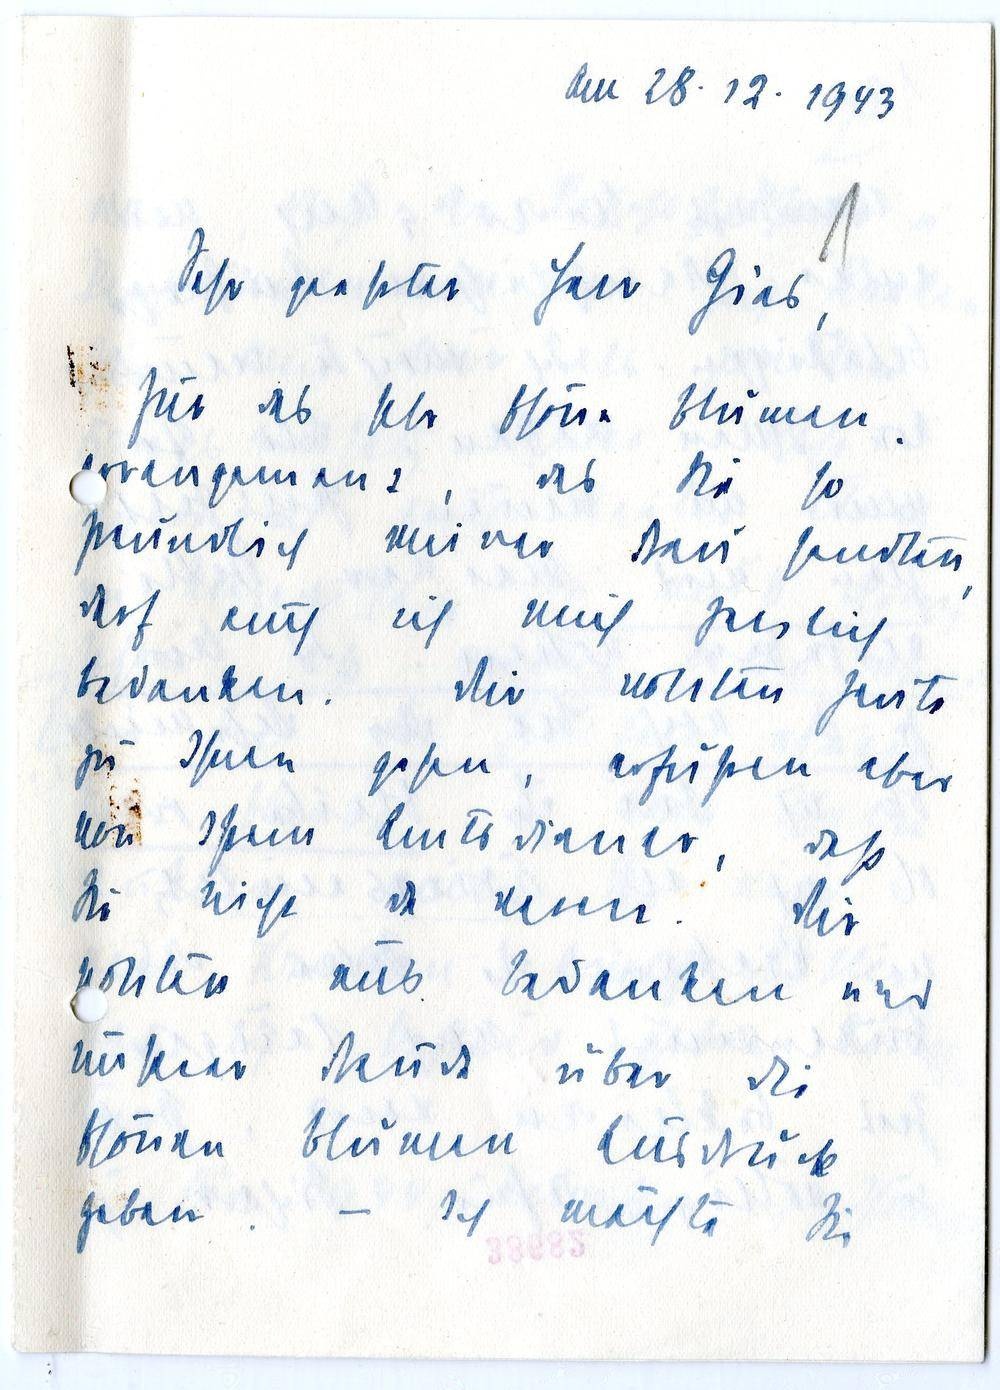 den 28. 12. 1943
Sehr geehrter Herr Gies,
für das sehr schöne Blumen-
arrangement, das Sie so
freundlich meiner Frau sandten,
darf auch ich mich herzlich
bedanken. Wir wollten heute
zu Ihnen gehen, erfuhren aber
von Ihrem Amtsdiener, daß
Sie nicht da waren. Wir
wollten uns bedanken und
unserer Freude über die
schönen Blumen Ausdruck
geben. – Ich möchte Sie
38682